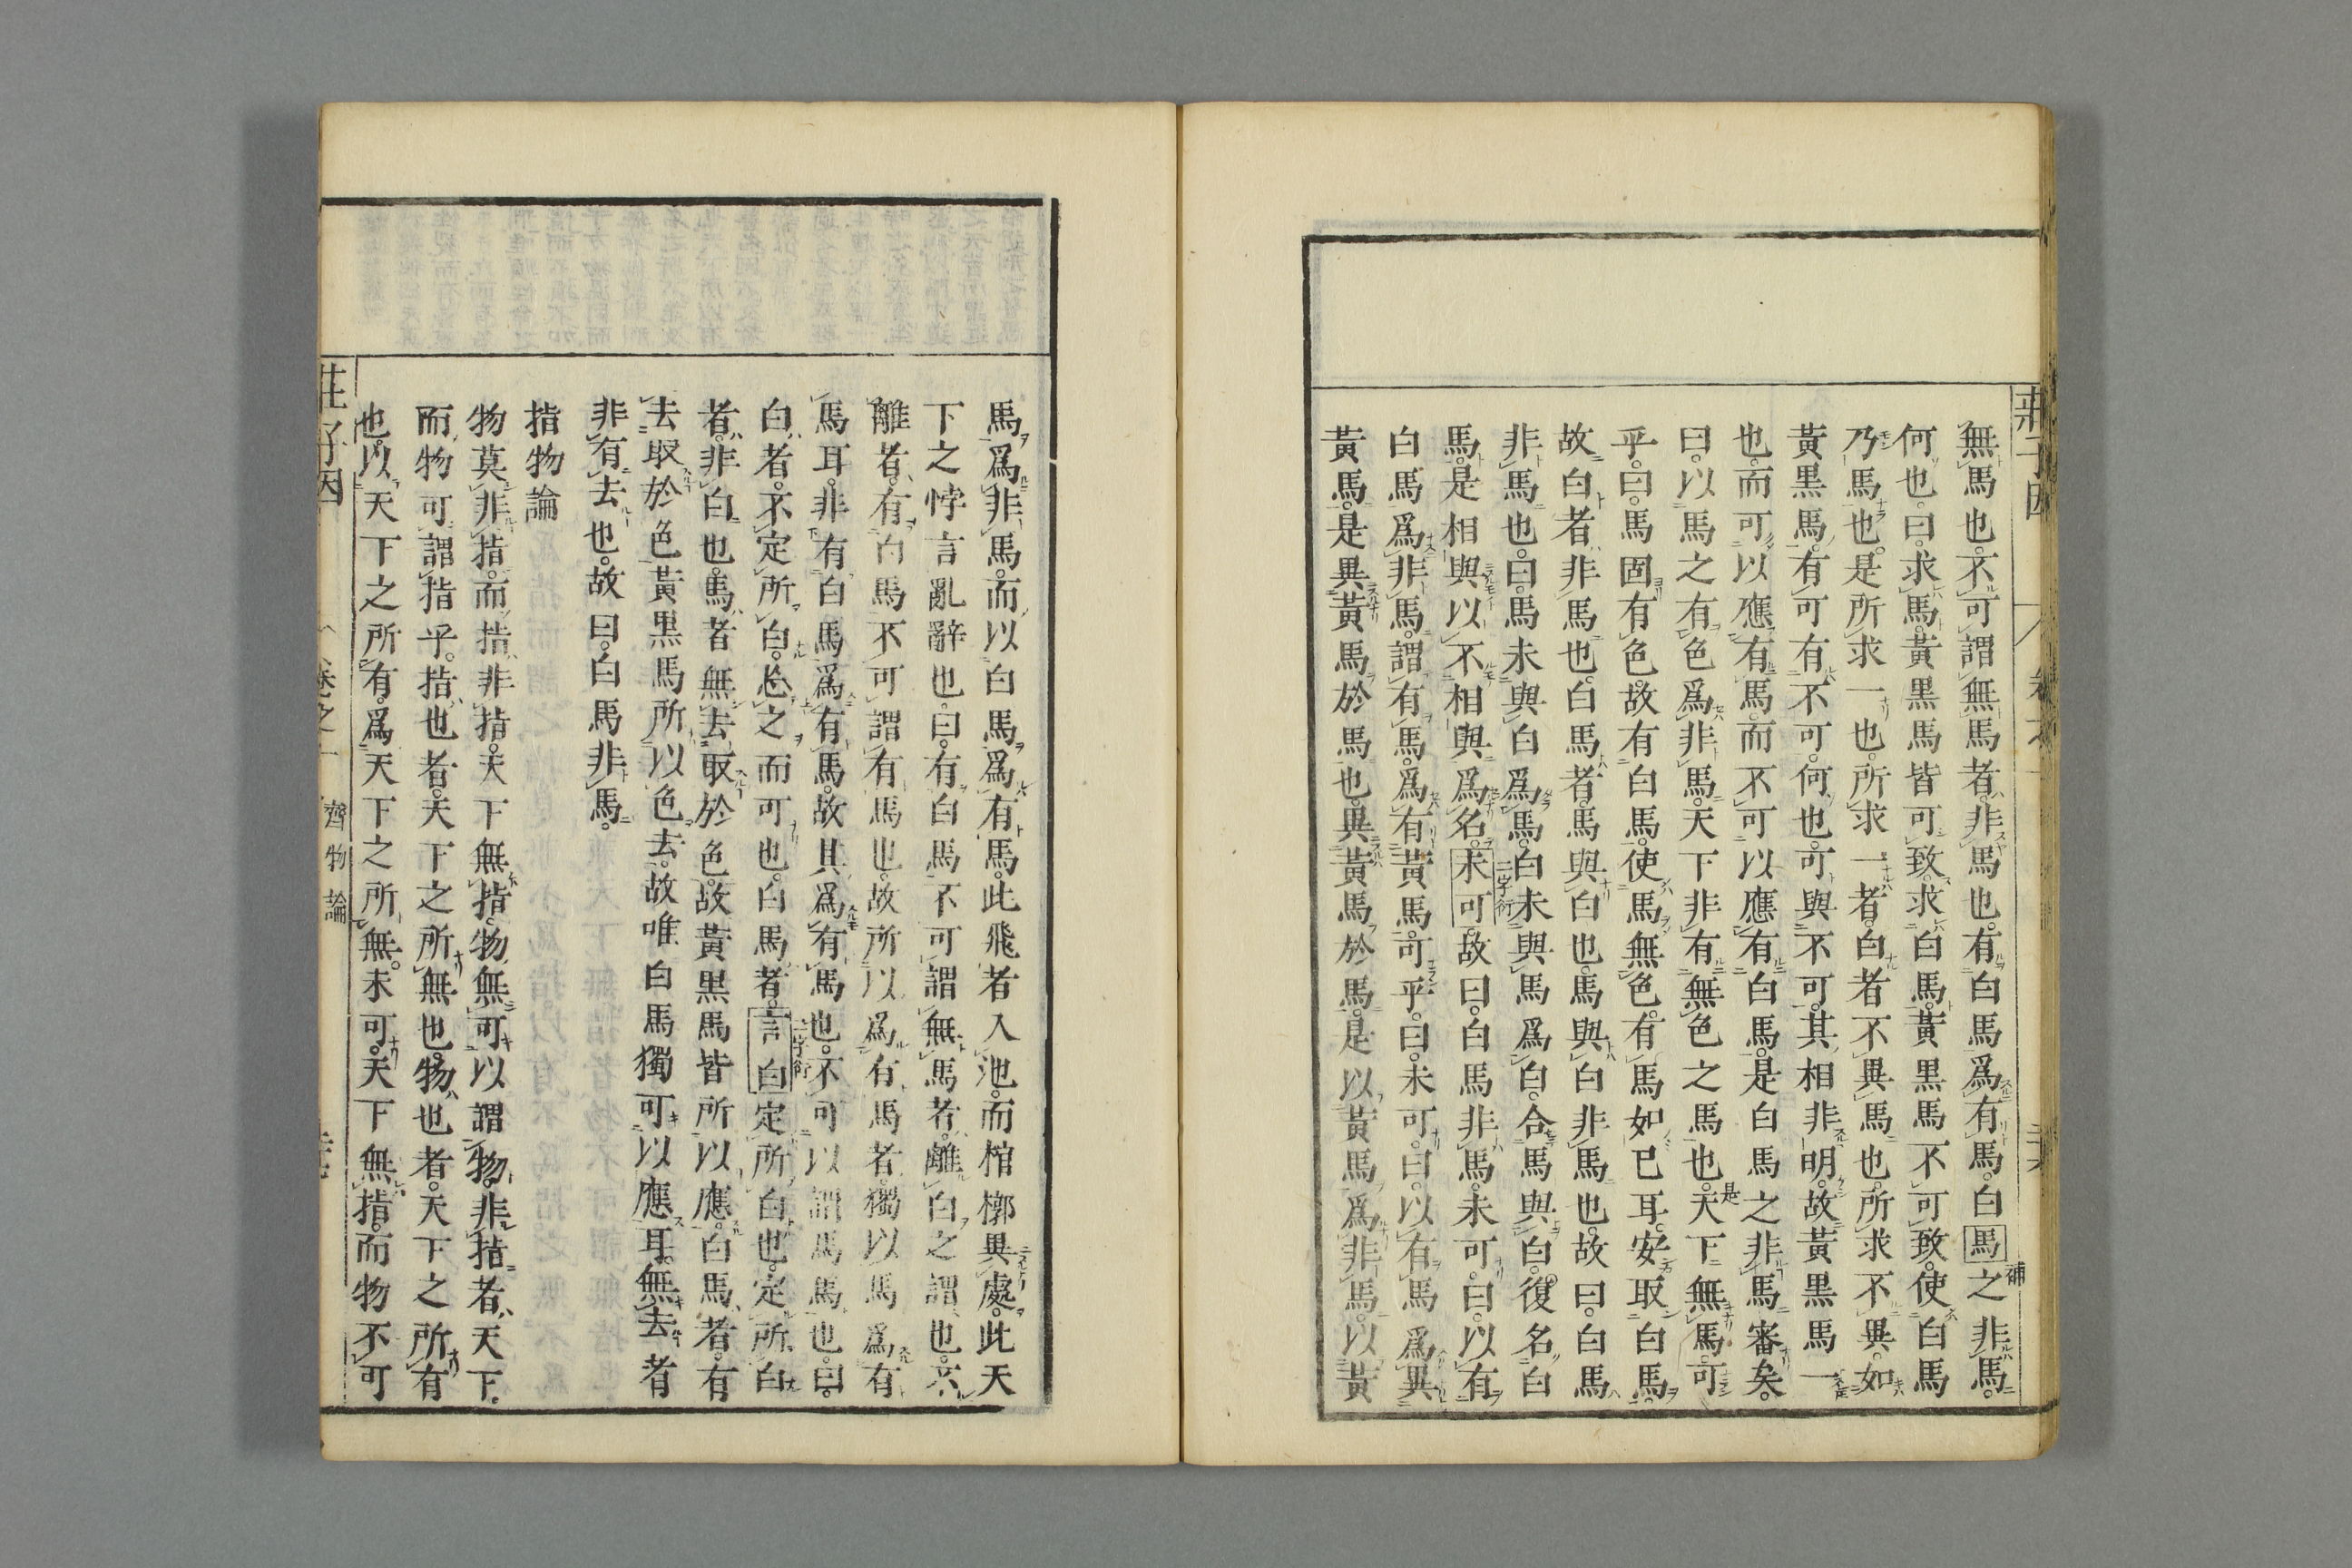 無馬也。不可謂無馬者。非馬也。有白馬爲有馬。白馬之非馬。
補
何也。曰。求馬。黃黒馬皆可致。求白馬。黃黒馬不可致。使白馬
乃馬也。是所求一也。所求一者。白者不異馬也。所求不異。如
黃黒馬。有可有不可。何也。可與不可。其相非明。故黃黒馬一
也。而可以應有馬。而不可以應有白馬。是白馬之非馬審矣。
曰。以馬之有色爲非馬。天下非有無色之馬也。天下無馬。可
是
乎。曰。馬固有色。故有白馬。使馬無色。有馬如已耳。安取白馬。
故白者。非馬也。白馬者。馬與白也。馬與白非馬也。故曰。白馬
非馬也。曰。馬未與白爲馬。白未與馬爲白。合馬與白。復名白
二字衍
馬。是相與以不相與爲名。未可。故曰。白馬非馬。未可。曰。以有
白馬爲非馬。謂有馬。爲有黃馬。可乎。曰。未可。曰。以有馬爲異
黃馬。是異黃馬於馬也。異黃馬於馬。是以黃馬爲非馬。以黃
馬爲非馬。而以白馬爲有馬。此飛者入池。而棺槨異處。此天
下之悖言亂辭也。曰。有白馬不可謂無馬者。離白之謂也。不
離者。有白馬不可謂有馬也。故所以爲有馬者。獨以馬爲有
馬耳。非有白馬爲有馬。故其爲有馬也。不可以謂馬馬也。曰。
白者。不定所白。忘之而可也。白馬者。言白定所白也。定所白
二字衍
者。非白也。馬者無去取於色。故黃黒馬皆所以應。白馬者。有
去取於色。黃黒馬所以色去。故唯白馬獨可以應耳。無去者
非有去也。故曰。白馬非馬。
指物論
物莫非指。而指非指。天下無指。物無可以謂物。非指者。天下
而物可謂指乎。指也者。天下之所無也。物也者。天下之所有
也。以天下之所有。爲天下之所無。未可。天下無指。而物不可
莊子因
卷之一
齊物論